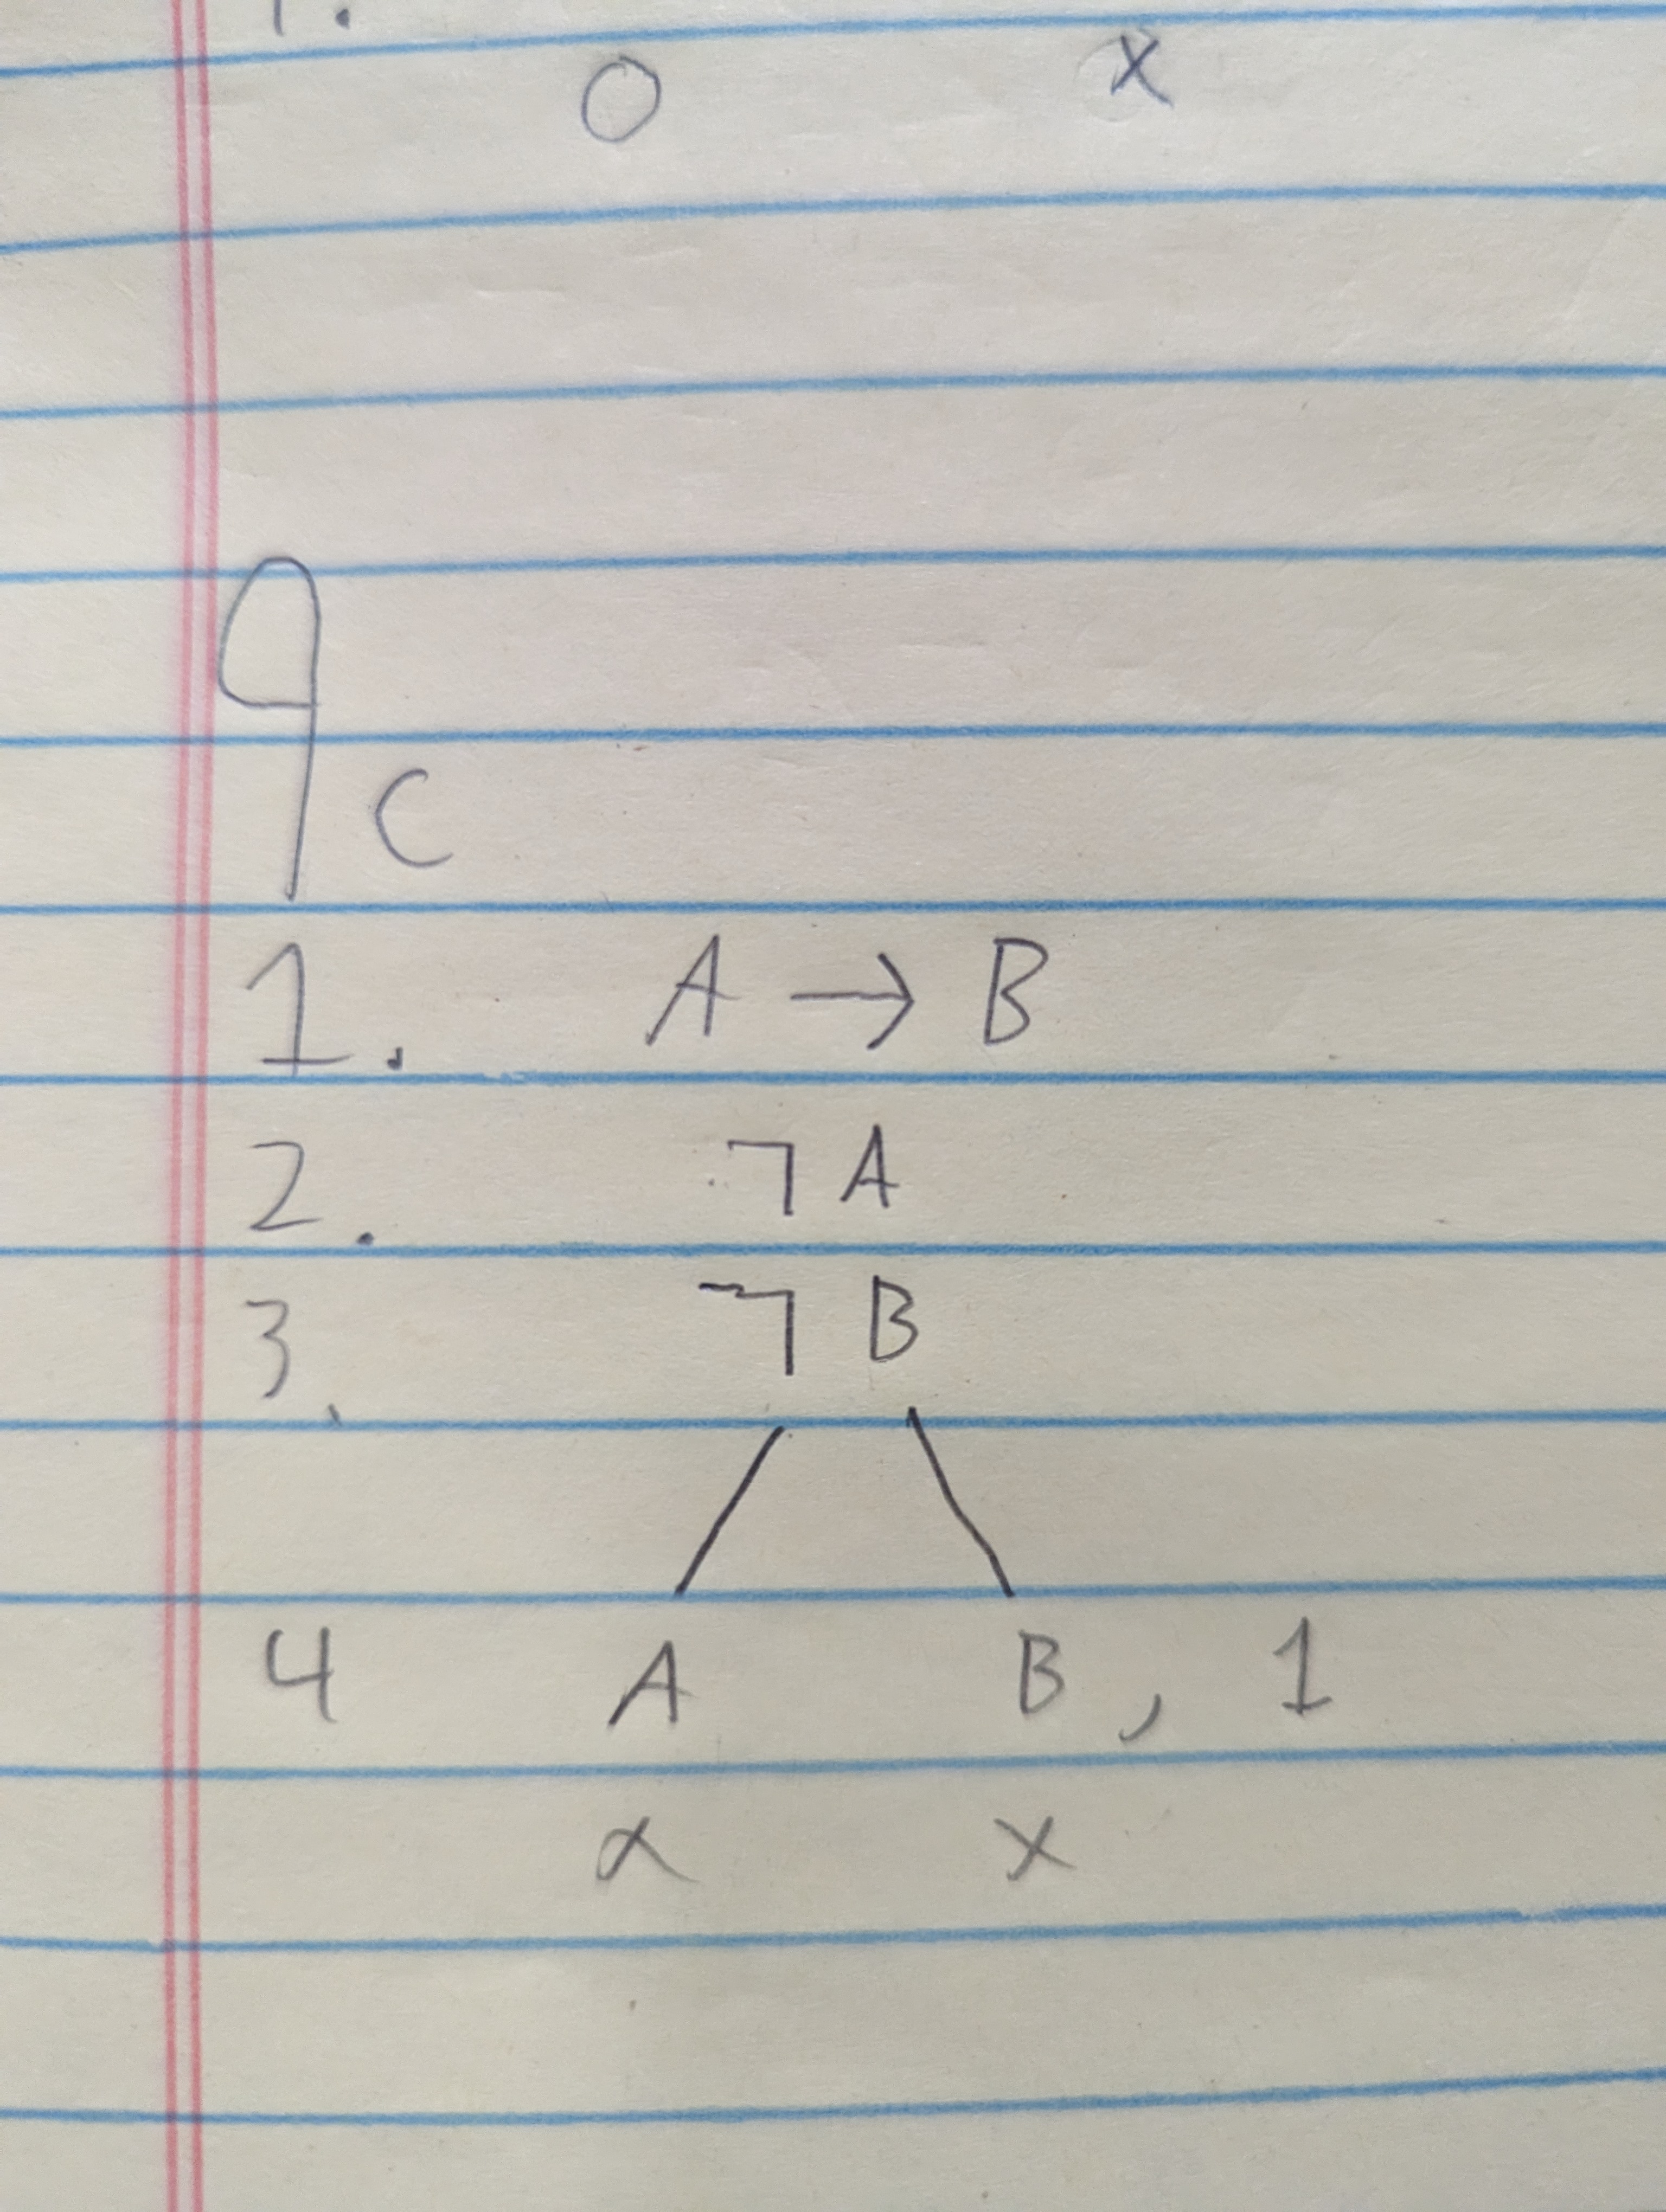 O x
9c
1. A → B
2. ¬ A
3. ¬ B
4 A B, 1
x x